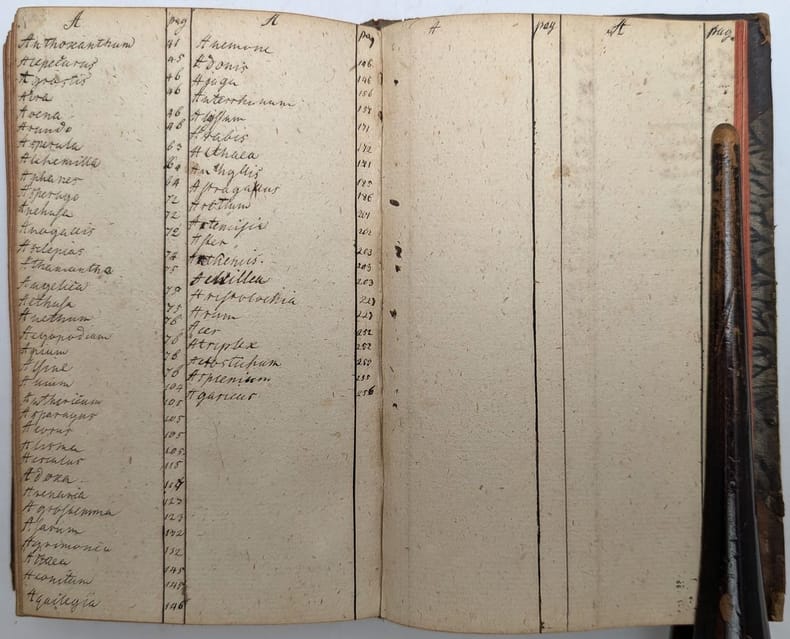 A pag
Anthoxanthum 41
Alopecurus 45
Agrostis 46
Aira 46
Avena 46
Arundo 46
Asperula 63
Alchemilla 64
Aphanes 64
Asperugo 72
Anchusa 72
Anagallis 72
Asclepias 74
Athamantha 75
Angelica 75
Aethusa 75
Anethum 76
Aegopodium 76
Apium 76
Alsine 76
Allium 104
Anthericum 105
Asparagus 105
Acorus 105
Alisma 105
Aesculus 115
Adoxa 117
Arenaria 123
Agrostemma 123
Asarum 132
Agrimonia 132
Actaea 145
Aconitum 145
Aquilegia 146
A pag
Anemone 146
Adonis 146
Ajuga 156
Anterrhinum
Alyssum 171
Arabis 172
Althaea 181
Anthyllis 185
Astragallus 186
Arctium 201
Artemisia 202
Aster 203
Anthemis 203
Achillea 203
Aristolochia 227
Arum 227
Acer 252
Atriplex 252
Acrostichum 255
Asplenium 255
Agaricus 256
A pag
A pag